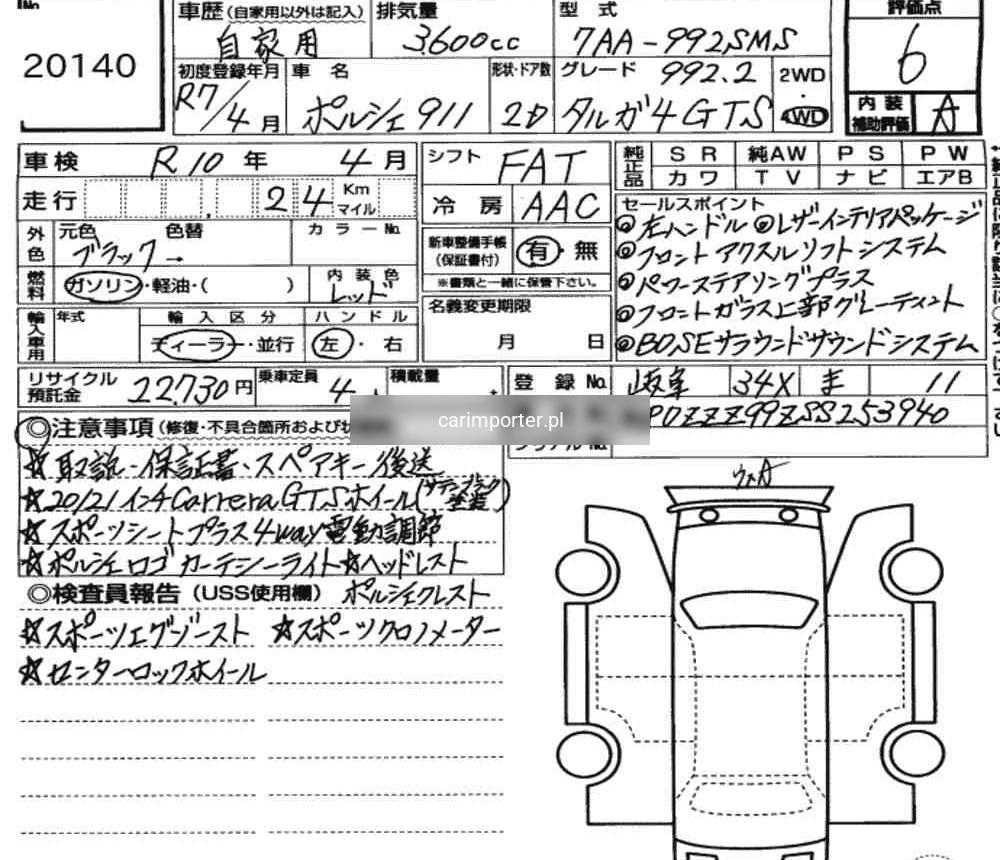 No.
20140
車歴(自家用以外は記入) 自家用
排気量 3600cc
型式 7AA-992SMS
評価点 6
内装補助評価 A
初度登録年月 R7/4月
車名 ポルシェ911
形状・ドア数 2D
グレード 992.2 タルガ4GTS
2WD 4WD
車検 R10年 4月
走行 24 Km マイル
外色 元色 ブラック→ 色替 カラーNo.
燃料 ガソリン・軽油・( ) 内装色 レッド
輸入車用 年式 輸入区分 ディーラー・並行 ハンドル 左・右
シフト FAT
冷房 AAC
新車整備手帳(保証書付) 有・無
※書類と一緒に保管下さい。
名義変更期限 月 日
純正品 SR 純AW PS PW
カワ TV ナビ エアB
セールスポイント
◎左ハンドル ◎レザーインテリアパッケージ
◎フロントアクスルリフトシステム
◎パワーステアリングプラス
◎フロントガラス上部グレーティント
◎BOSEサラウンドサウンドシステム
リサイクル預託金 22,730円
乗車定員 4人
積載量
登録No. 岐阜 34X ま 11
carimporter.pl
P0ZZZ99ZSS253940
◎注意事項(修復・不具合箇所および
☆取説・保証書・スペアキー後送
☆20/21インチCarreraGTSホイール(サテンブラック塗装)
☆スポーツシートプラス4way電動調節
☆ポルシェロゴカーテシーライト☆ヘッドレスト
◎検査員報告(USS使用欄) ポルシェクレスト
☆スポーツエグゾースト ☆スポーツクロノメーター
☆センターロックホイール